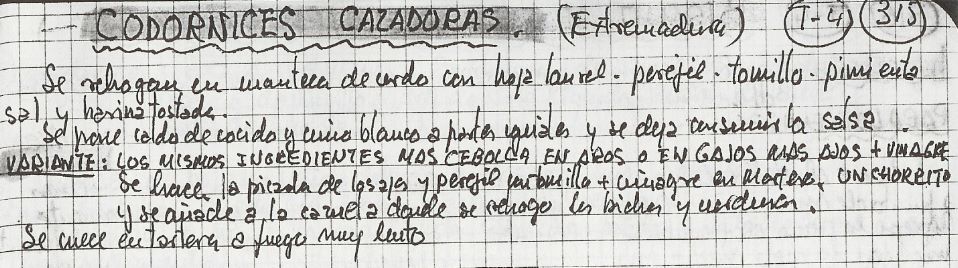 CODORNICES CAZADORAS. (Extremadura) (T-4) (315)
Se rehogan en manteca de cerdo con hoja laurel - perejil - tomillo - pimienta
sal y harina tostada.
Se pone caldo de cocido y vino blanco a partes iguales y se deja consumir la salsa.
VARIANTE: LOS MISMOS INGREDIENTES MAS CEBOLLA EN AROS O EN GAJOS MAS AJOS + VINAGRE
Se hace la picada de los ajos y perejil tomillo + vinagre en mortero, UN CHORRITO
y se añade a la cazuela donde se rehogó los bichos y verduras.
Se cuece en tartera a fuego muy lento